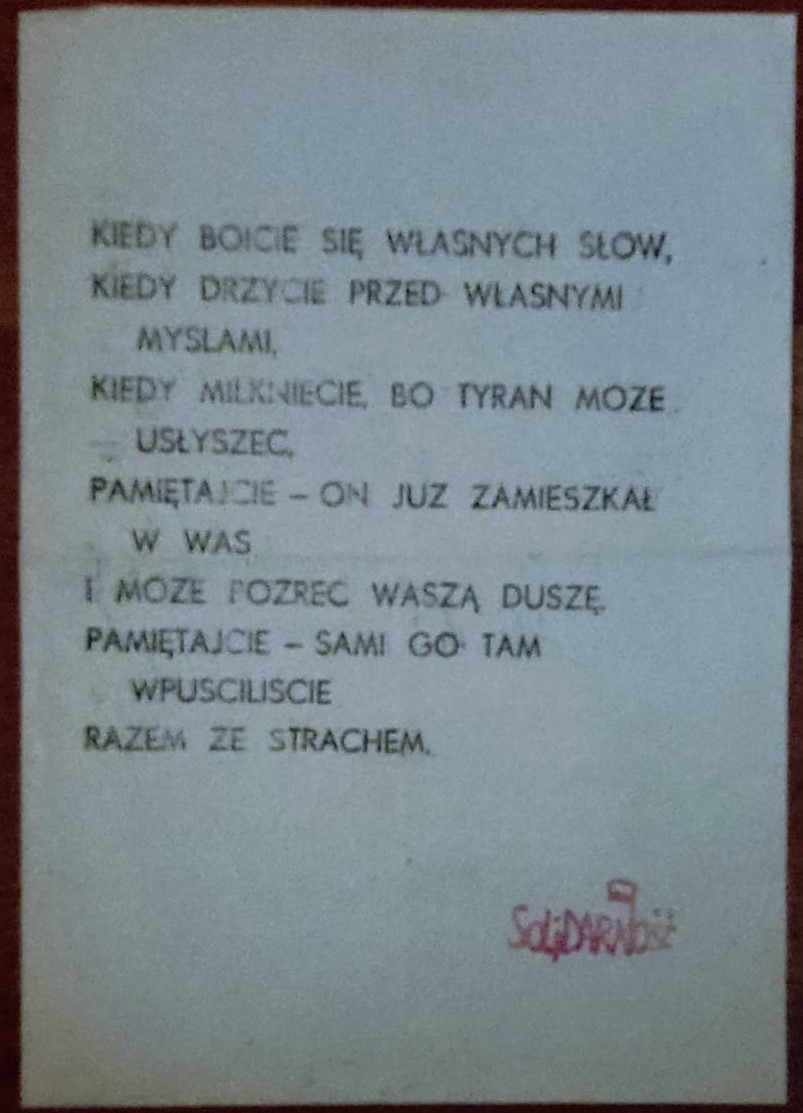 KIEDY BOICIE SIĘ WŁASNYCH SŁOW,
KIEDY DRZYCIE PRZED WŁASNYMI
MYSLAMI,
KIEDY MILKNIECIE, BO TYRAN MOZE
USŁYSZEC,
PAMIĘTAJCIE – ON JUZ ZAMIESZKAŁ
W WAS
I MOZE POZREC WASZĄ DUSZĘ.
PAMIĘTAJCIE – SAMI GO TAM
WPUSCILISCIE
RAZEM ZE STRACHEM.
SOLiDARNOŚĆ